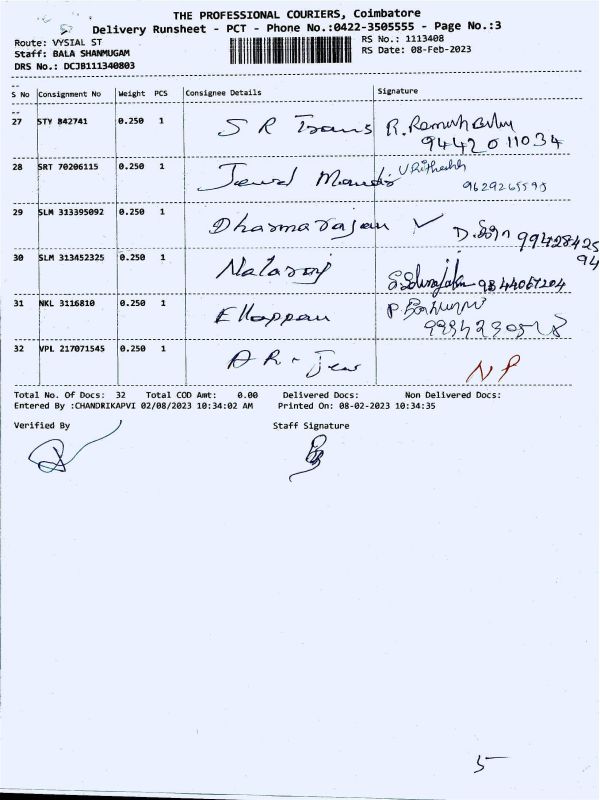 THE PROFESSIONAL COURIERS, Coimbatore
Delivery Runsheet - PCT - Phone No.:0422-3505555 - Page No.:3
Route: VYSIAL ST
RS No.: 1113408
Staff: BALA SHANMUGAM
RS Date: 08-Feb-2023
DRS No.: DCJB111340803
S No Consignment No Weight PCS Consignee Details Signature
27 STY 842741 0.250 1 S R Trans
9442011034
28 SRT 70206115 0.250 1 Jewel
29 SLM 313395092 0.250 1 Dharmarajan
30 SLM 313452325 0.250 1 Nataraj
31 NKL 3116810 0.250 1 Ellappan
32 VPL 217071545 0.250 1 A R - Jew NP
Total No. Of Docs: 32 Total COD Amt: 0.00 Delivered Docs: Non Delivered Docs:
Entered By :CHANDRIKAPVI 02/08/2023 10:34:02 AM Printed On: 08-02-2023 10:34:35
Verified By Staff Signature
5